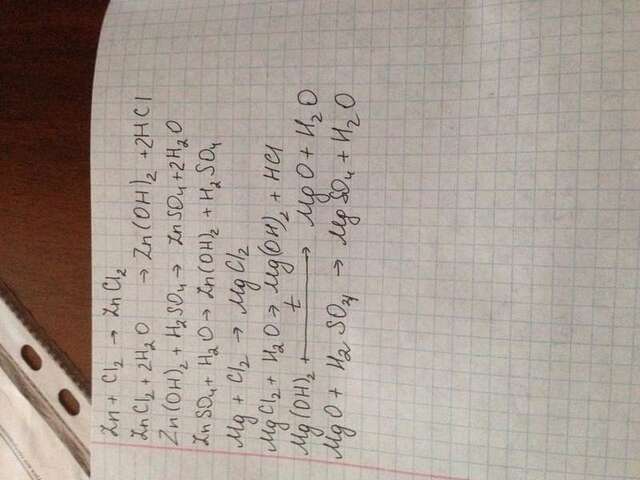 Zn + Cl₂ → ZnCl₂
ZnCl₂ + 2H₂O → Zn(OH)₂ + 2HCl
Zn(OH)₂ + H₂SO₄ → ZnSO₄ + 2H₂O
ZnSO₄ + H₂O → Zn(OH)₂ + H₂SO₄
Mg + Cl₂ → MgCl₂
MgCl₂ + H₂O → Mg(OH)₂ + HCl
Mg(OH)₂ + t → MgO + H₂O
MgO + H₂SO₄ → MgSO₄ + H₂O